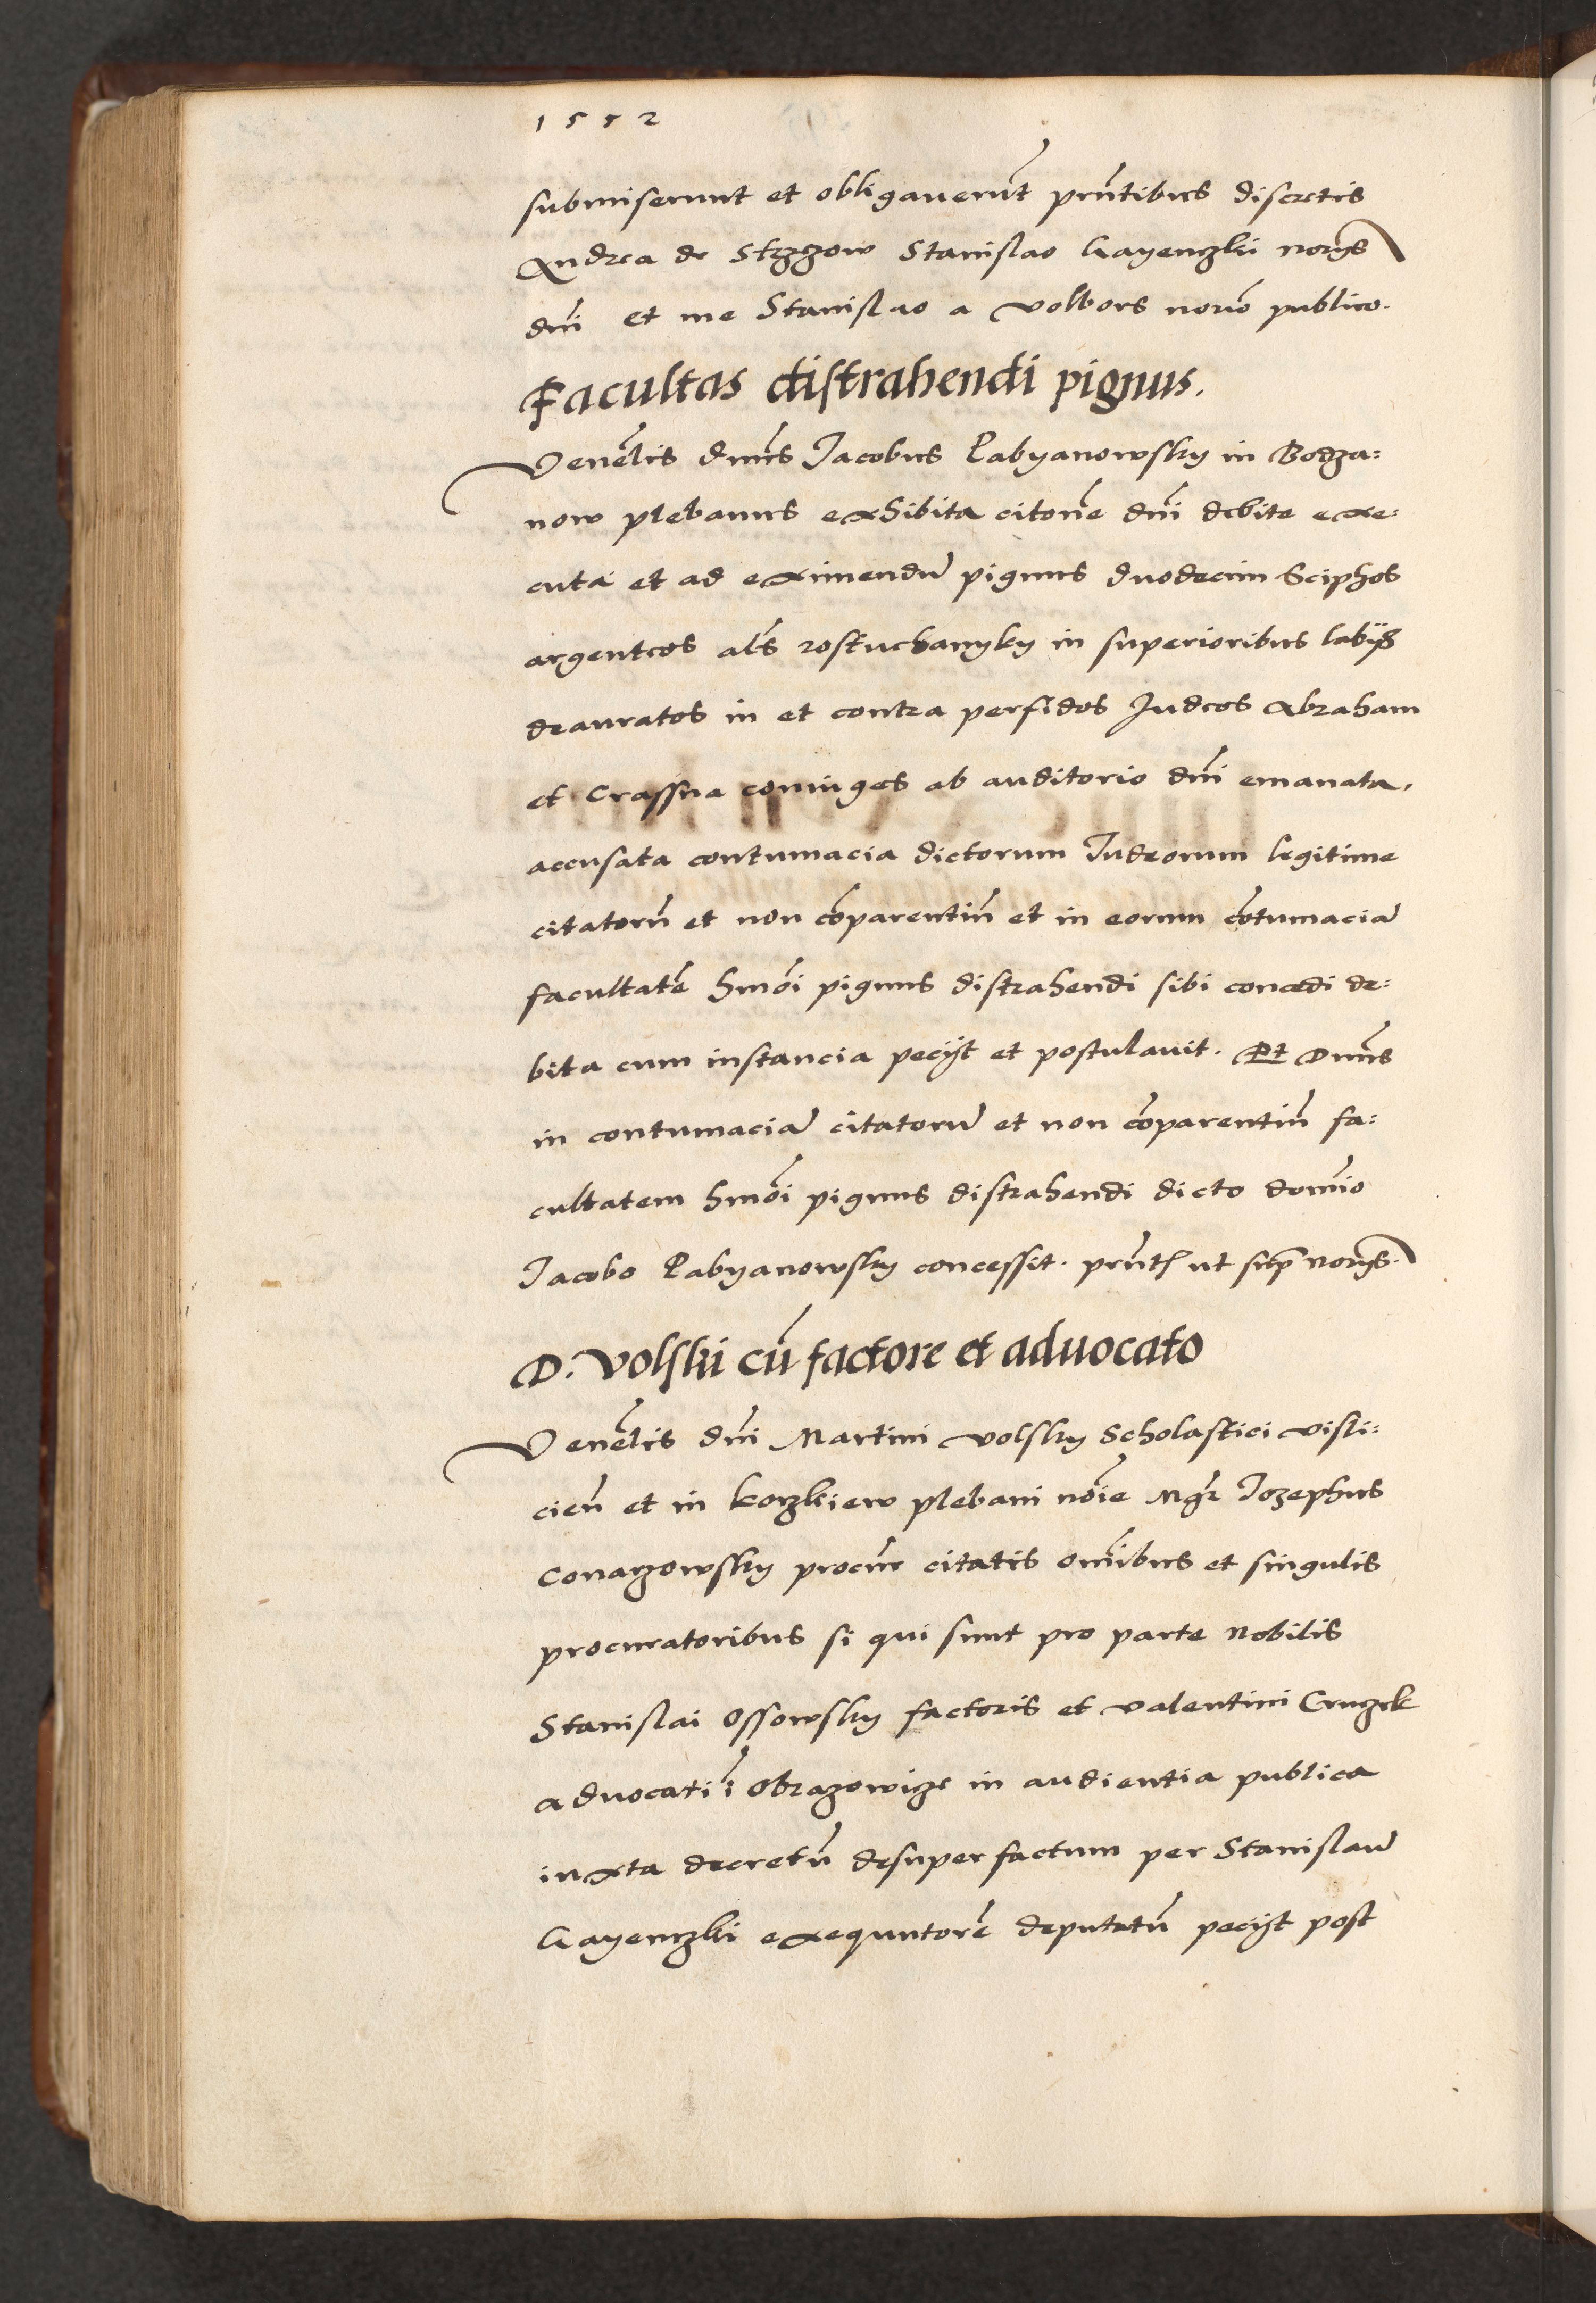 1552
submiserunt et obligauerūt pn̄tibus discretis
Andrea de Strzgow Stanislao Gayenczki norys
dnī et me Stanislao a volbors norīo publico.
Facultas distrahendi pignus.
Venēlis dnūs Jacobus Pabyanowsky in Bodza=
now plebanus exhibita citonē dnī debite exe=
cuta et ad eximendū pignus duodecim Sciphos
argenteos al̄s rostuchanyky in superioribus labijs
deauratos in et contra perfidos Judeos Abraham
et Crassna coniuges ab auditorio dnī emanata,
accusata contumacia dictorum Iudeorum legitime
citatorū et non cōparentiū et in eorum cōtumaciā
facultatē hmōi pignus distrahendi sibi concedi de=
bita cum instancia pecijt et postulauit. Et Dnūs
in contumaciā citatorū et non cōparentiū fa=
cultatem hmōi pignus distrahendi dicto domīo
Jacobo Pabyanowsky concessit. pn̄tƷ ut sup̄ norys.
D. Volski cū factore et aduocato
Venēlis dnī Martini volsky Scholastici visli=
cieñ et in korzkiew plebani nōie Mgr̄ Iozephus
Conarzowsky procūr citatis omībus et singulis
procuratoribus si qui sunt pro parte nobilis
Stanislai Ossowsky factoris et valentini Cruzek
aduocati ī Obrazowize in audientia publica
iuxta decretū desuper factum per Stanislaū
Gayenczki exequutorē deputatū pecijt post